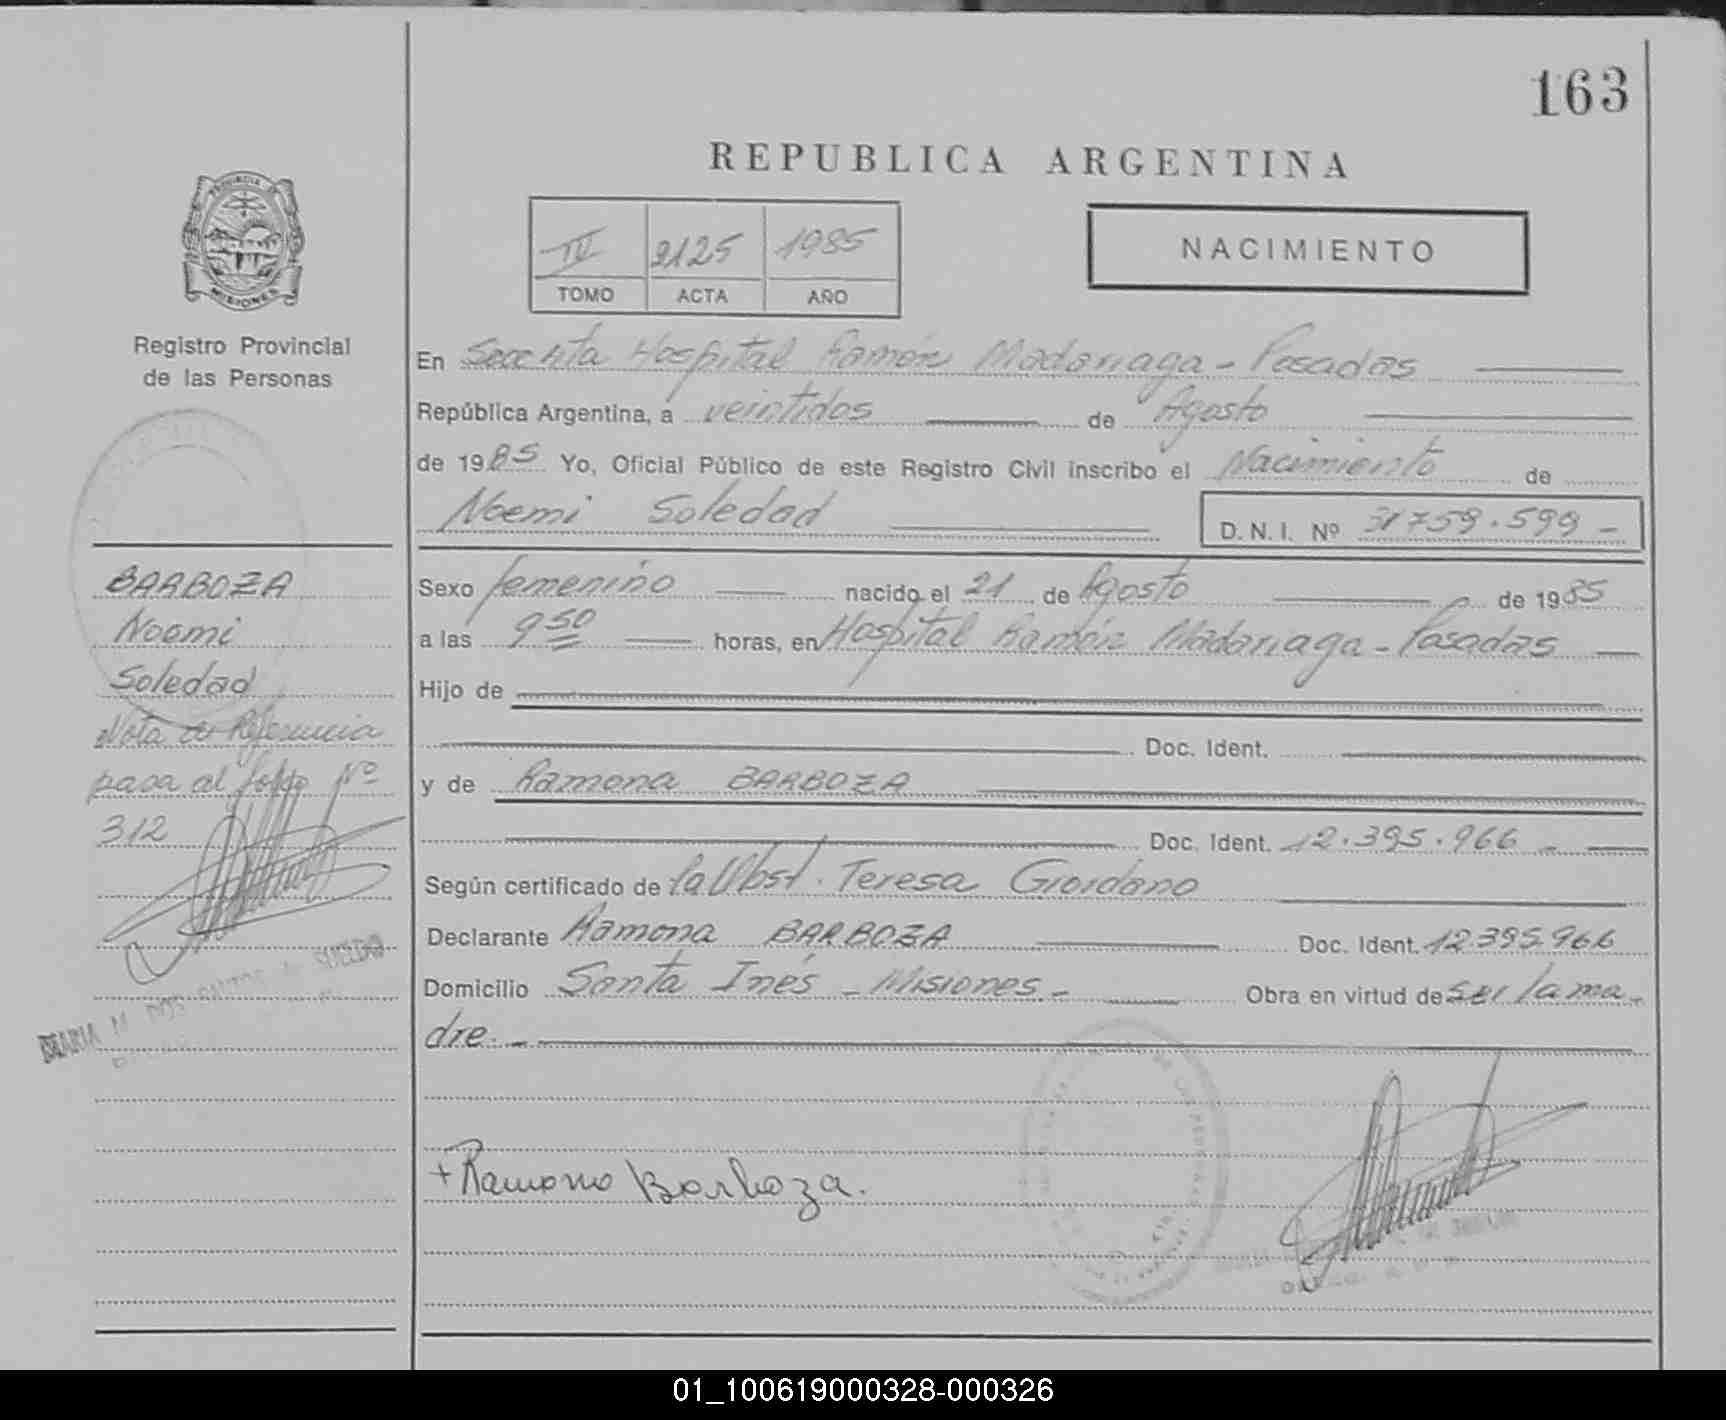 163
REPUBLICA ARGENTINA
IV 2125 1985
TOMO ACTA AÑO
NACIMIENTO
PROVINCIA DE
MISIONES
Registro Provincial
de las Personas
En Secc Hospital Ramón Madariaga - Posadas
República Argentina, a veintidos de Agosto
de 1985 Yo, Oficial Público de este Registro Civil inscribo el Nacimiento de
Noemi Soledad D.N.I. Nº 31759.599 -
BARBOZA
Noemi
Soledad
Nota de Referencia
pasa al folio Nº
312
MARIA M. DOS SANTOS de
Sexo femenino nacido el 21 de Agosto de 1985
a las 9 50 horas, en Hospital Ramón Madariaga - Posadas
Hijo de
Doc. Ident.
y de Ramona BARBOZA
Doc. Ident. 12.395.966 -
Según certificado de la Obst. Teresa Giordano
Declarante Ramona BARBOZA Doc. Ident. 12.395.966
Domicilio Santa Inés - Misiones - Obra en virtud de ser la ma-
dre. -
+ Ramona Barboza.
01_100619000328-000326